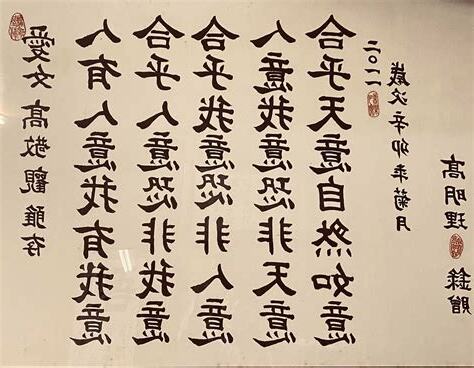 愛女高敬觀雅存
人有人意我有我意
合乎人意恐非我意
合乎我意恐非人意
人意我意恐非天意
合乎天意自然如意
二〇一一
歲次辛卯年菊月
高明理 錄贈